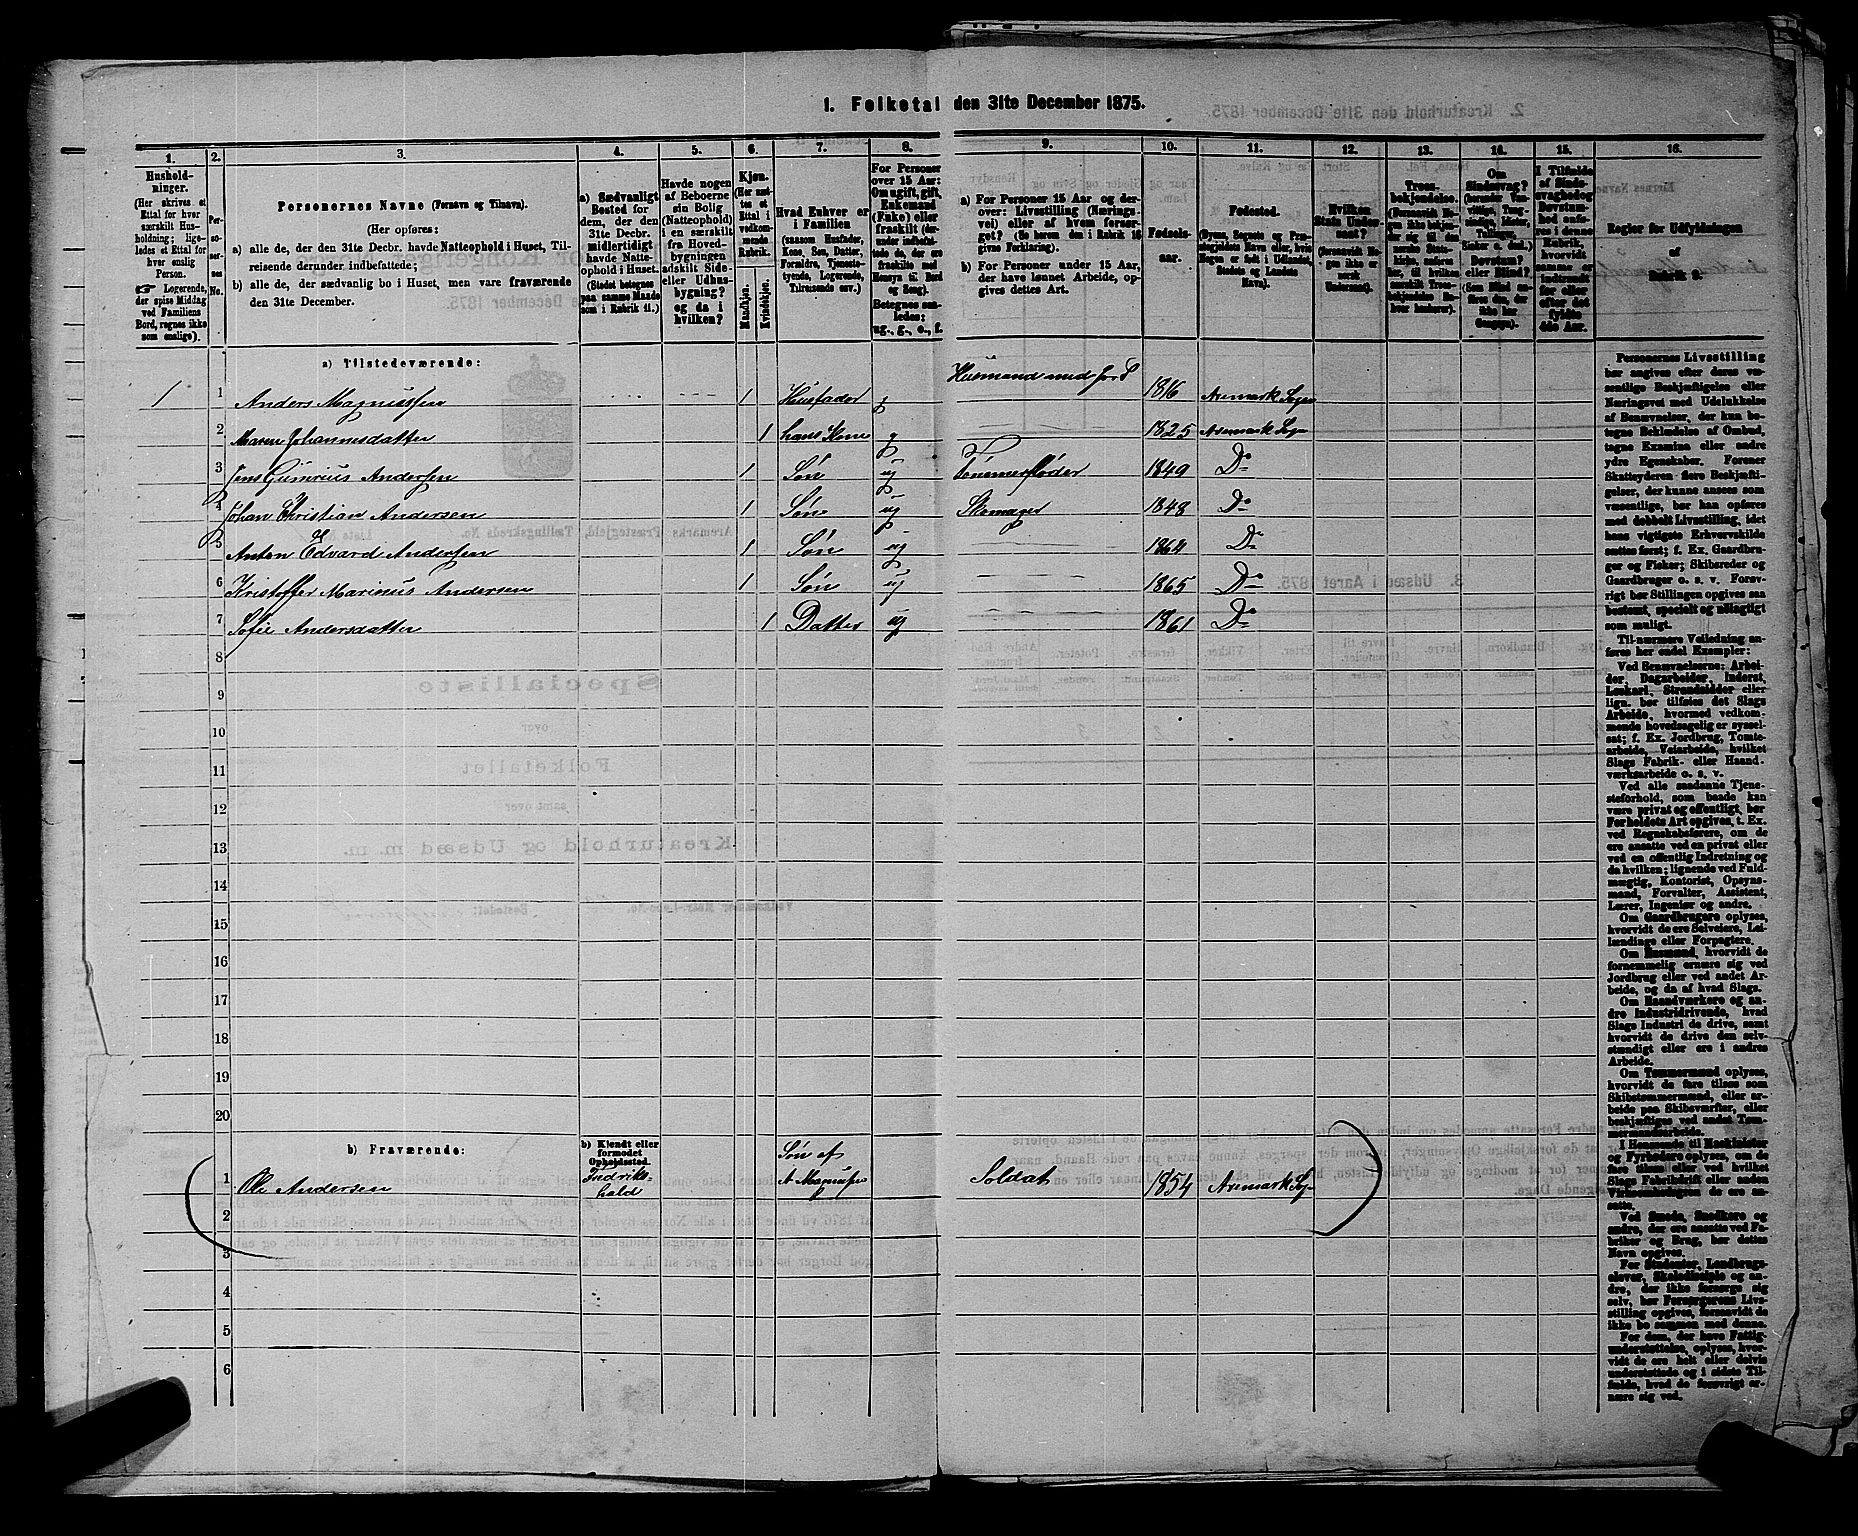 1. Folketal den 31te December 1875.
1.
Hushold-
ninger.
(Her skrives et
Ettal for hver
særskilt Hus-
holdning; lige-
ledes et Ettal for
hver enslig
Person.
☛ Logerende,
der spise Middag
ved Familiens
Bord, regnes ikke
som enslige).
2.
Per-
so-
ner-
nes
No.
3.
Personernes Navne (Fornavn og Tilnavn).
(Her opføres:
a) alle de, der den 31te Decbr. havde Natteophold i Huset, Til-
reisende derunder indbefattede;
b) alle de, der sædvanlig bo i Huset, men vare fraværende
den 31te December.
4.
a) Sædvanligt
Bosted for
dem, der den
31te Decbr.
midlertidigt
havde Natte-
ophold i Huset.
(Stedet betegnes
paa samme Maade
som i Rubrik 11.)
5.
Havde nogen
af Beboerne
sin Bolig
(Natteophold)
i en særskilt
fra Hoved-
bygningen
adskilt Side-
eller Udhus-
bygning?
og da i
hvilken?
6.
Kjøn.
(Her sæt-
tes et
Ettal i
vedkom-
mende
Rubrik.
Mandkjøn.
Kvindekjøn.
7.
Hvad Enhver er
i Familien
(saasom Husfader,
Kone, Søn, Datter,
Forældre, Tjeneste-
tyende, Logerende,
Tilreisende osv.)
8.
For Personer
over 15 Aar:
Om ugift, gift,
Enkemand
(Enke) eller
fraskilt (der-
under indbefat-
tede de, som
ere fraskilte
med Hensyn til Bord
og Seng).
Betegnes saa-
ledes:
ug., g., e., f.
9.
a) For Personer 15 Aar og der-
over: Livsstilling (Nærings-
vei) eller af hvem forsør-
get? (Se herom den i Rubrik 16
givne Forklaring).
b) For Personer under 15 Aar,
der have lønnet Arbeide, op-
gives dettes Art.
10.
Fødsels-
aar.
11.
Fødested.
(Byens, Sognets og Præ-
stegjeldets Navn eller, hvis
Nogen er født i Udlandet,
Stedets og Landets
Navn).
12.
Hvilken
Stats Under-
saat?
(Besvares kun, hvis No-
gen ikke er
norsk
Undersaat).
13.
Troes-
bekjendelse.
14.
Om
Sindssvag?
Døvstum?
eller Blind?
15.
I Tilfælde
af Sinds-
svaghed og
Døvstum-
hed anfø-
res i denne
Rubrik,
hvorvidt
samme er
indtraadt
før eller
efter det
fyldte
4de Aar.
16.
Regler for Udfyldningen
af
Rubrik 9.
a) Tilstedeværende:
1 1 Anders Magnussen 1 Husfader g Husmand med Jord 1816 Aremark Sogn
2 Maren Johannesdatter 1 hans Kone g 1825 Aremark Sogn
3 Jens Gumerius Andersen 1 Søn ug Tømmerfløder 1849 Do
4 Johan Christian Andersen 1 Søn ug Skomager 1848 Do
5 Anton Edvard Andersen 1 Søn ug 1864 Do
6 Kristoffer Marinus Andersen 1 Søn ug 1865 Do
7 Sofie Andersdatter 1 Datter ug 1861 Do
8
9
10
11
12
13
14
15
16
17
18
19
20
b) Fraværende:
b) Kjendt eller
formodet
Opholdssted.
1 Ole Andersen Fredriks-
hald Søn af
A Magnussen Soldat 1854 Aremark Sogn
2
3
4
5
6
Personernes Livsstilling
bør angives efter deres væ-
sentlige Beskjæftigelse eller
Næringsvei med Udelukkelse
af Benævnelser, der kun be-
tegne Beklædelse af Ombud,
tagne Examina eller andre
ydre Egenskaber. Forener
Skatteyderen flere Beskjæfti-
gelser, der kunne ansees som
væsentlige, bør han opføres
med dobbelt Livsstilling, idet
hans vigtigste Erhvervskilde
sættes først; f. Ex. Gaardbru-
ger og Fisker; Skibsreder og
Gaardbruger o. s. v. Forøv-
rigt bør Stillingen opgives saa
bestemt, specielt og nøiagtigt
som muligt.
Til nærmere Veiledning an-
føres her endel Exempler:
Ved Benævnelserne: Arbei-
der, Dagarbeider, Inderst,
Løskarl, Strandsidder eller
lign. bør tilføies det Slags
Arbeide, hvormed vedkom-
mende hovedsagelig er syssel-
sat; f. Ex. Jordbrug, Tomte-
arbeide, Veiarbeide, hvilket
Slags Fabrik- eller Haand-
værksarbeide o. s. v.
Ved alle saadanne Tjene-
steforhold, som baade kan
være privat og offentligt, bør
Forholdets Art opgives, t. Ex.
ved Regnskabsførere, om de
ere ansatte ved en privat eller
ved en offentlig Indretning og
da hvilken; lignende ved Fuld-
mægtig, Kontorist, Opsyns-
mand, Forvalter, Assistent,
Lærer, Ingeniør og andre.
Om Gaardbrugere oplyses,
hvorvidt de ere Selveiere, Lei-
lændinge eller Forpagtere.
Om Husmænd, hvorvidt de
fornemmelig ernære sig ved
Jordbrug eller ved andet Ar-
beide, og da af hvad Slags.
Om Haandværkere og an-
dre Industridrivende, hvad
Slags Industri de drive, samt
hvorvidt de drive den selv-
stændigt eller ere i andres
Arbeide.
Om Tømmermænd oplyses,
hvorvidt de fare tilsøs som
Skibstømmermænd, eller ar-
beide paa Skibsværfter, eller
beskjæftiges ved andet Tøm-
mermandsarbeide.
I Henseende til Maskinister
og Fyrbødere oplyses, om de
fare tilsøs eller ved hvilket
Slags Fabrikdrift eller anden
Virksomhed de ere an-
satte.
Ved Smede, Snedkere og
andre, der ere ansatte ved Fa-
briker og Brug, bør dettes
Navn opgives.
For Studenter, Landbrugs-
elever, Skoledisciple og an-
dre, der ikke forsørge sig
selv, bør Forsørgerens Livs-
stilling opgives, forsaavidt de
ikke bo sammen med denne.
For dem, der have Fattig-
understøttelse, oplyses, hvor-
vidt de ere helt eller delvis
understøttede og i sidste Til-
fælde, hvad de forøvrigt er-
nære sig ved.